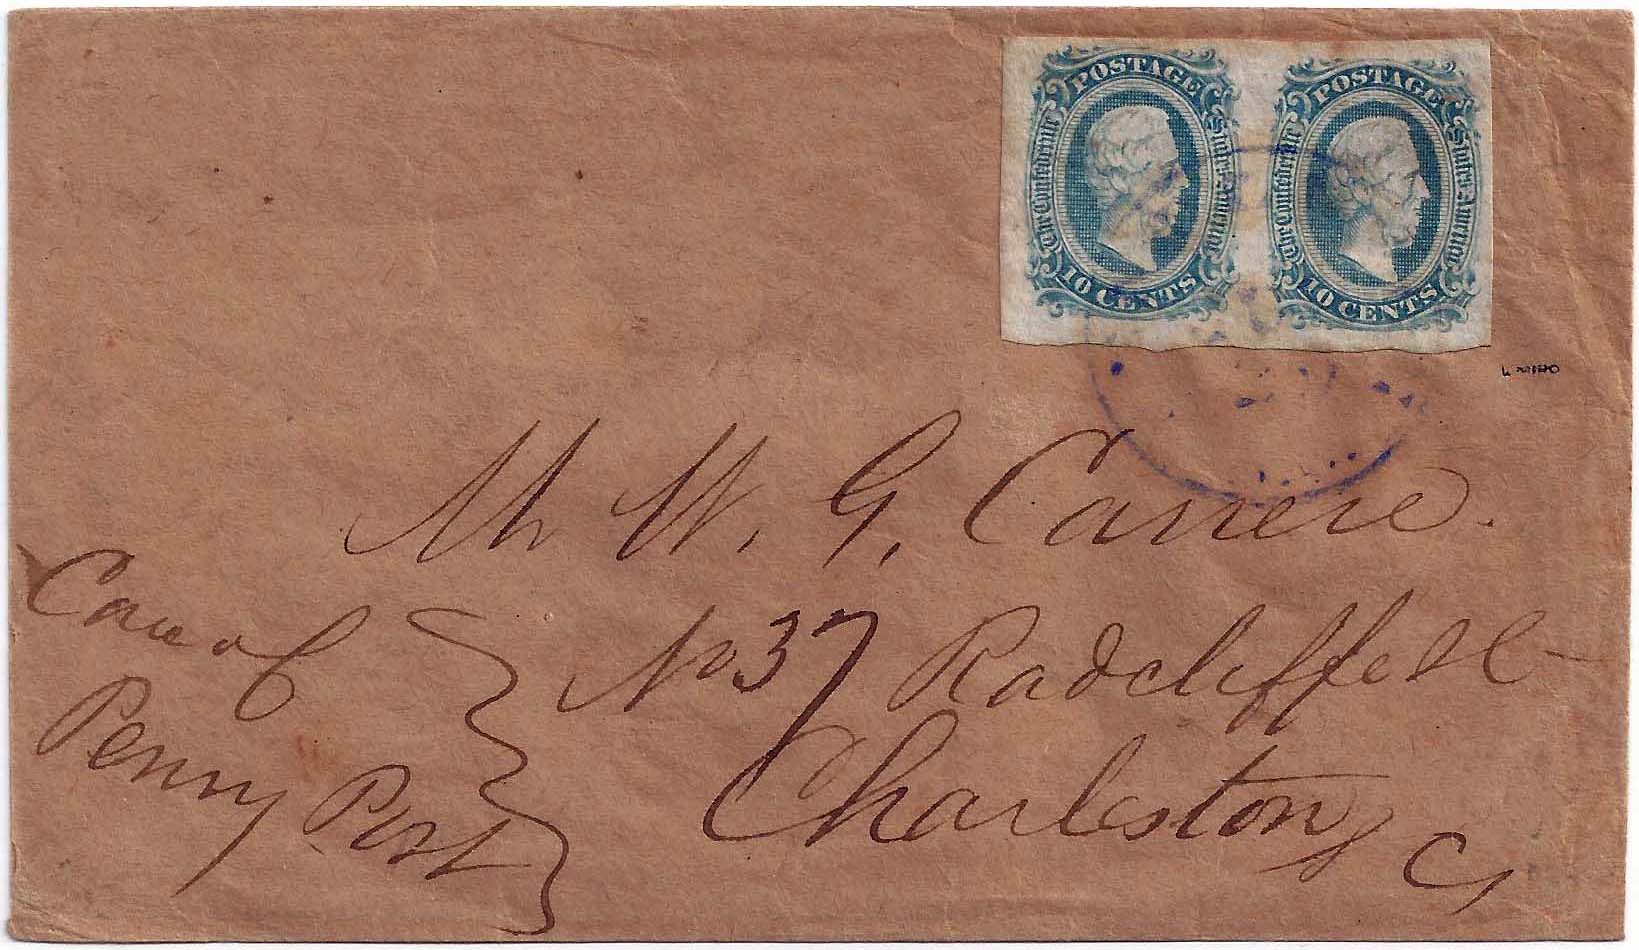 POSTAGE
The Confederate States of America
10 CENTS
POSTAGE
The Confederate States of America
10 CENTS
Mr W. G. Carrere.
No 37 Radcliffe St
Charleston, S C,
Care of
Penny Post